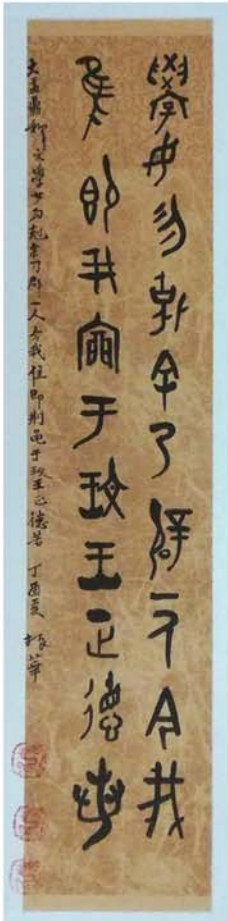 學女勿𠑇余乃辟一人今我
隹即井㐭于玟王正德若
大盂鼎 釋文 學女勿剋余乃辟一人今我隹即刑于玟王正德若 丁酉夏